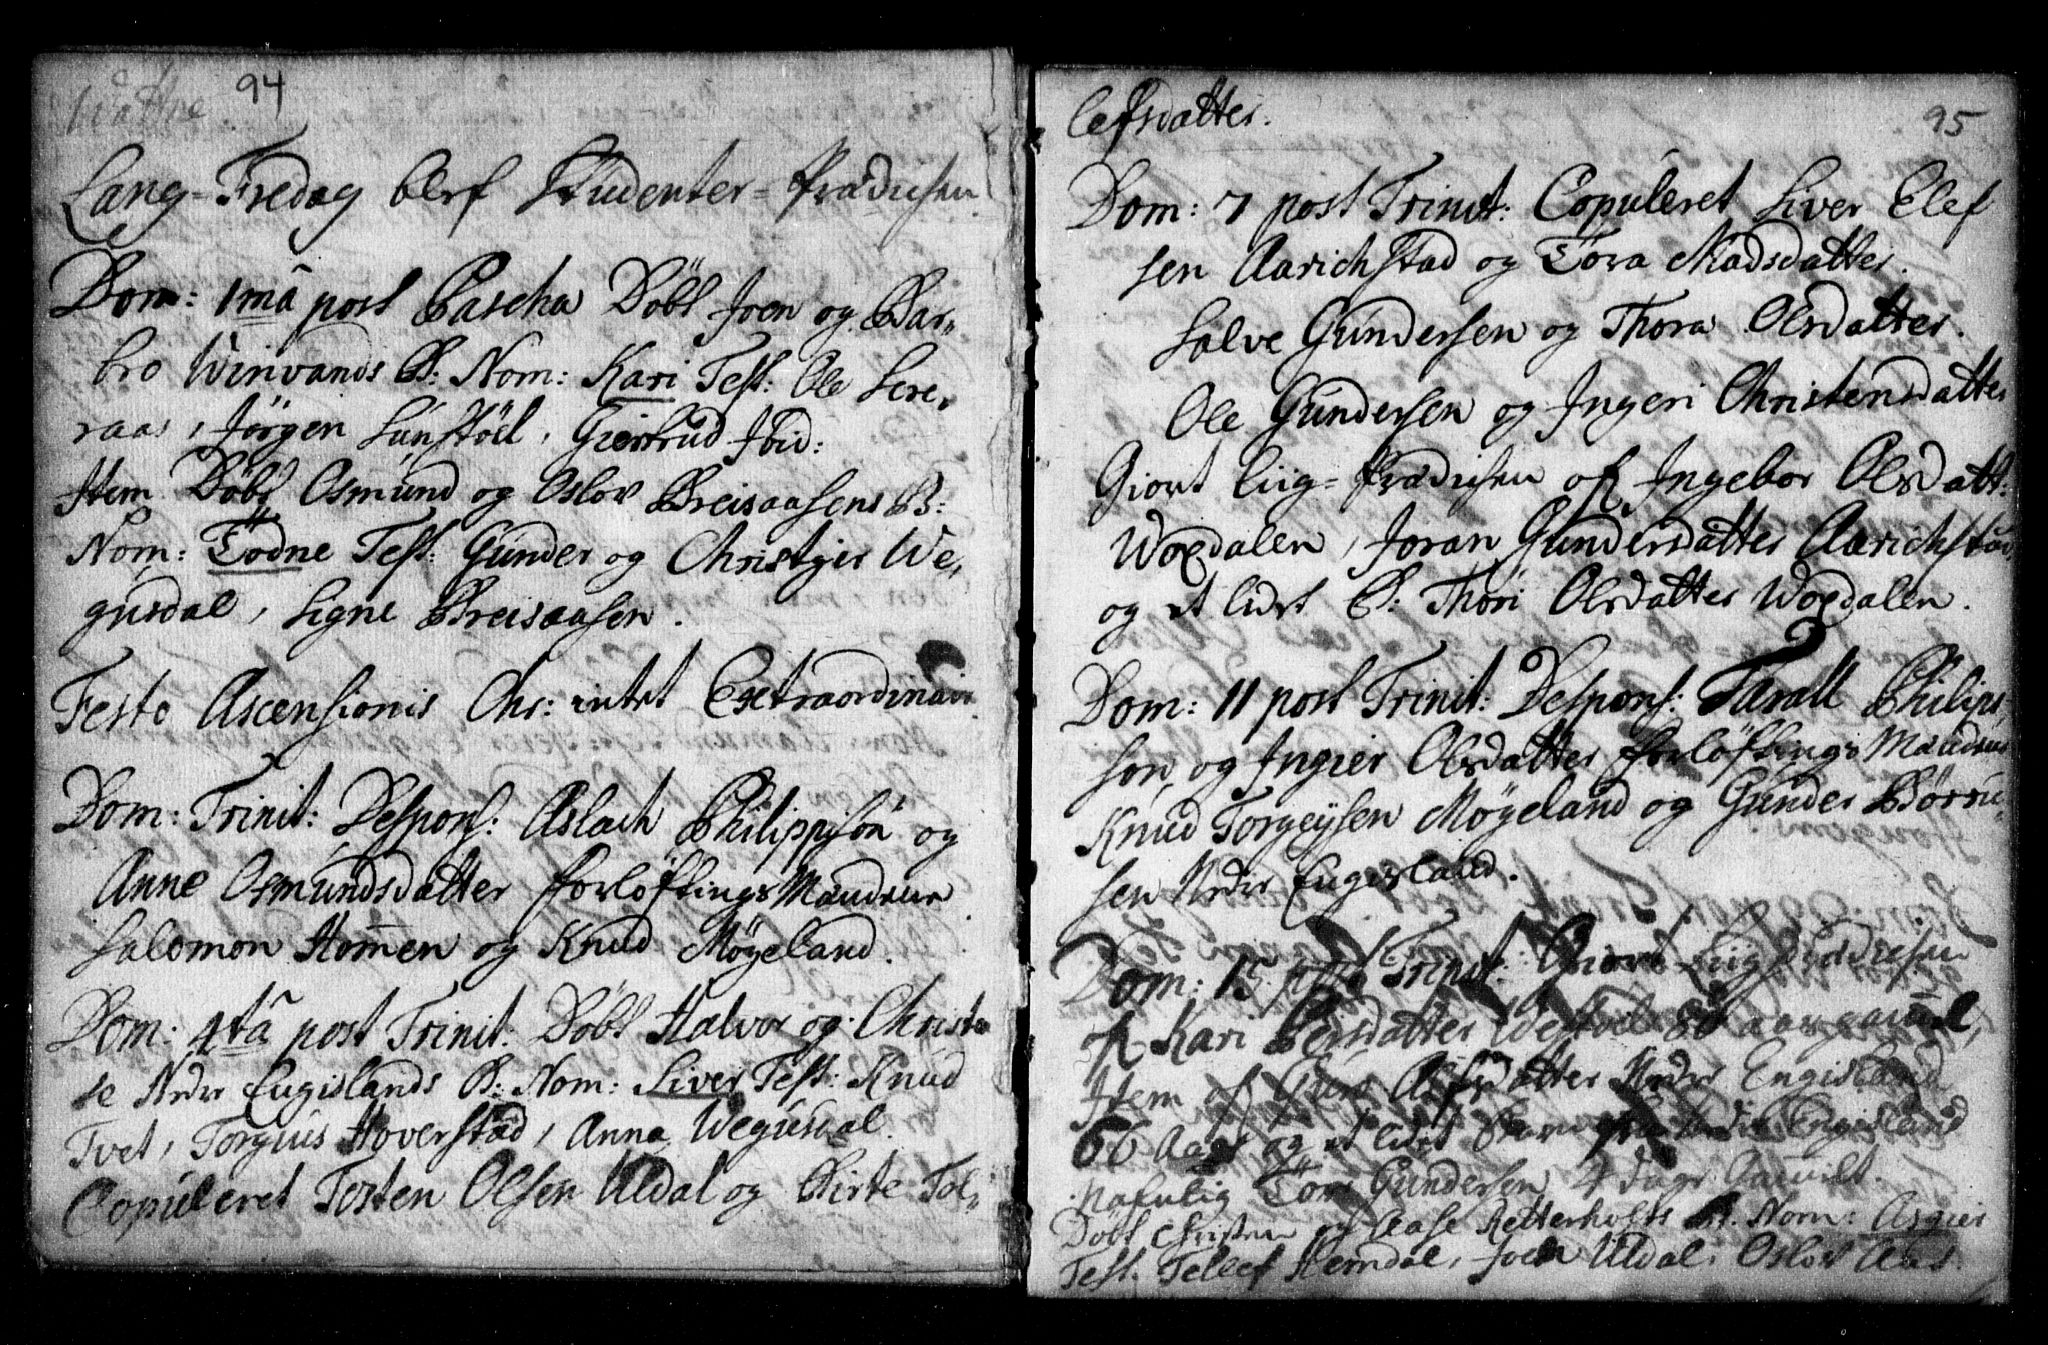 94
Lang-Fredag blef Studenter-Prædichen
Dom: 1mâ post Pascha Döbt Joen og Bar-
bro Winvands B: Nom: Kari Test: Ole Lere-
raas, Jørgen Sunstöel, Giertrud Ibid:
Item Döbt Osmund og Oslov Breisaasens B:
Nom: Tödne Test: Gunder og Christzier We-
gusdal, Signe Breisaasen.
Festo Ascensionis Chr: intet Extraordinair
Dom: Trinit: Despons: Aslach Philippsön og
Anne Osmundsdatter forløftings Mændene
Salomon Hommen og Knud Møgeland.
Dom: 4tâ post Trinit: Döbt Halvor og Christe
se Nedr Eugislands B: Nom: Siver Test: Knud
Tvet, Torgius Hoverstad, Anna Wegusdal.
Copuleret Tosten Olsen Uldal og Birte Tol-
95
lefsdatter.
Dom: 7 post Trinit: Copuleret Siver Elef
sen Aarichstad og Tora Madsdatter.
Salve Gundersen og Thora Olsdatter.
Ole Gundersen og Ingeri Christensdatter
Giort liig-Prædichen af Ingebor Olsdatt:
Woxdalen, Joran Gundersdatter Aarichstad
og et lidet B: Thori Olsdatter Woxdalen.
Dom: 11 post Trinit: Despons: Taralt Philips
son og Ingier Olsdatter forløftings Mændene
Knud Torgeysen Møgeland og Gunder Børru-
sen Nedr Eugisland.
Dom: 15 post Trinit: Giort Liig Prædichen
af Kari Peersdatter 80 aar gammel,
Item af Olefsdatter Nedr Engisland
66 Aar og et lidet Barn fra Nedr Engisland
nafnlig Tore Gundersen 4 dage Gammelt.
Döbt Christen og Aase Retterholts B. Nom: Asgier
Test: Tellef Hemdal, Joen Uldal, Oslov Aas.